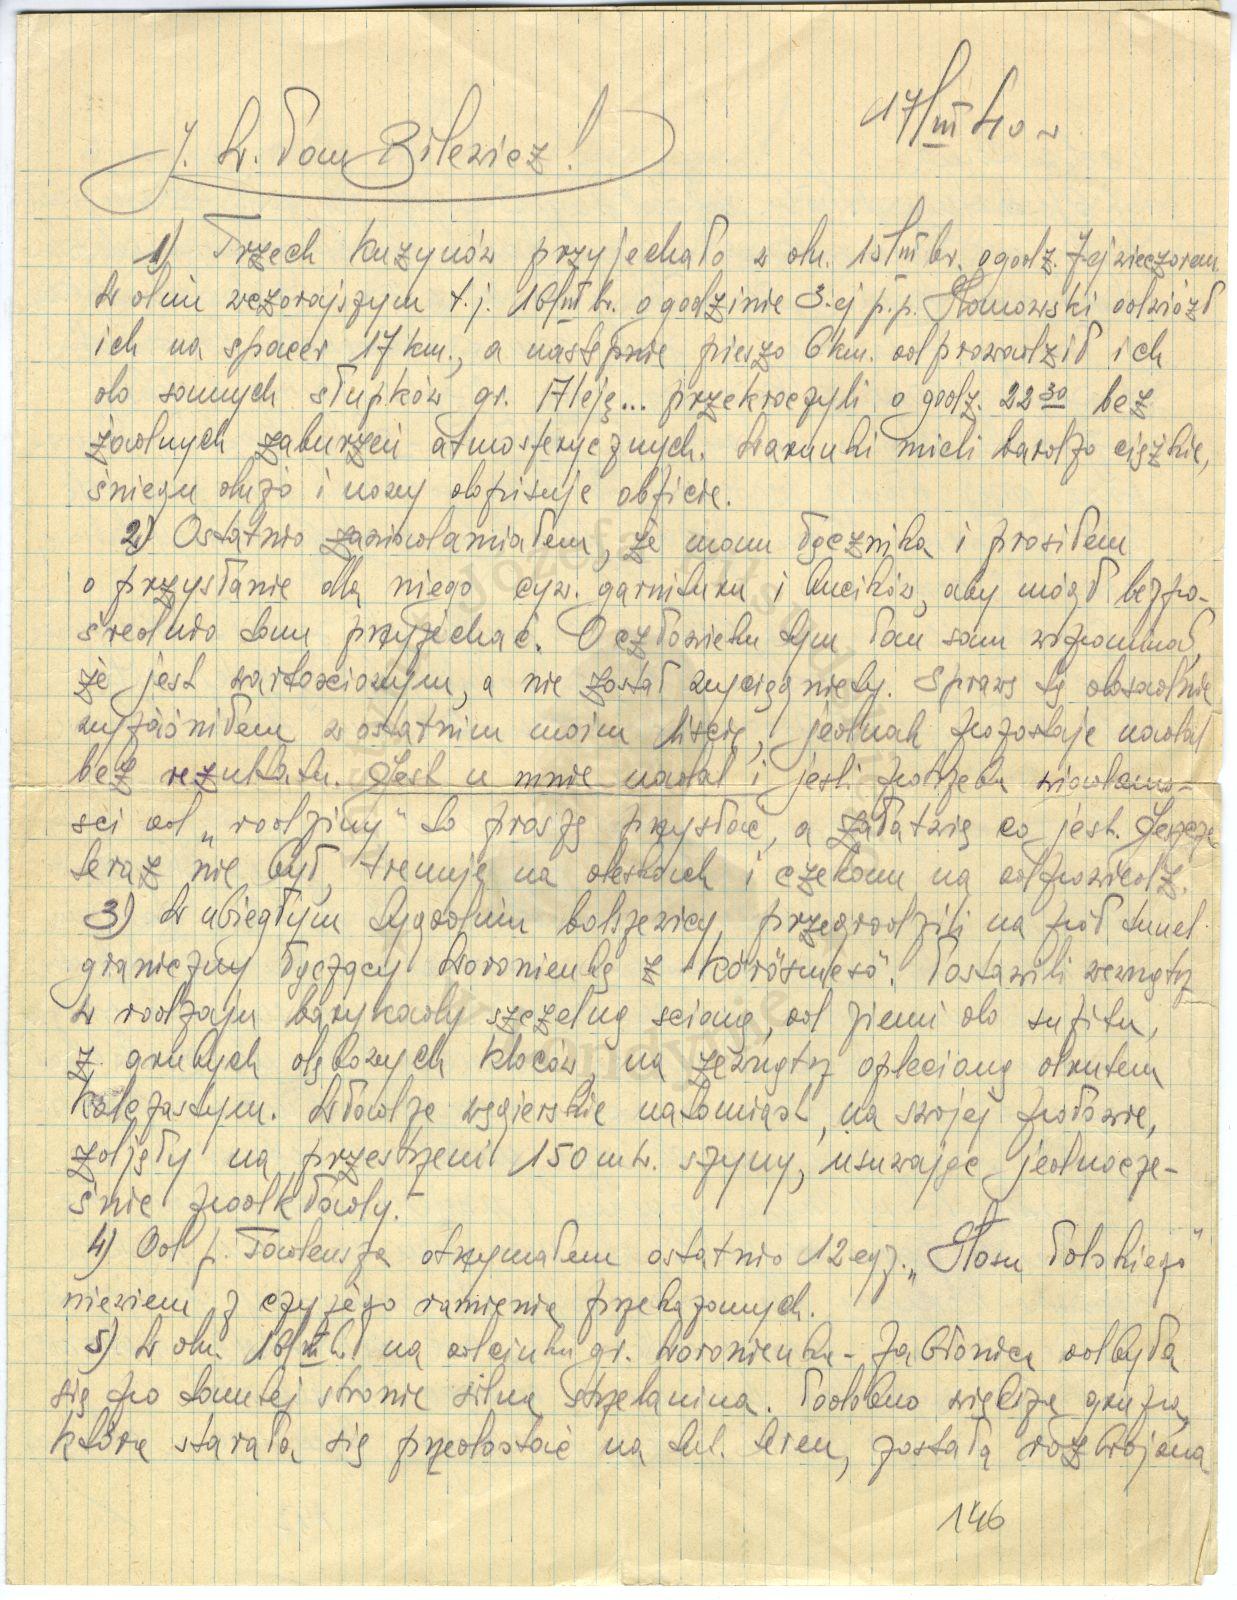 17/III 40 r
J. W. Pan Bilewicz!
1) Trzech kuzynów przyjechało w dn. 15/III br. o godz. 7-ej wieczorem.
W dniu wczorajszym t.j. 16/III br. o godzinie 3-ej p.p. odwiózł
ich na spacer 17 km., a następnie pieszo 6 km. odprowadził ich
do samych słupków gr. Aleję... przekroczyli o godz. 22 30 bez
żadnych zaburzeń atmosferycznych. Warunki mieli bardzo ciężkie,
śniegu dużo i nowy dopisuje obficie.
2) Ostatnio zawiadamiałem, że mam łącznika i prosiłem
o przysłanie dla niego cyw. garnituru i bucików, aby mógł bezpo-
średnio tam przyjechać. O człowieku tym Pan sam wspominał,
że jest wartościowym, a nie został wyciągnięty. Sprawę tę dosadnie
wyjaśniłem w ostatnim moim liście, jednak pozostaje nadal
bez rezultatu. Jest u mnie nadal i jeśli potrzeba wiadomo-
sci od „rodziny" to proszę przysłać, a załatwię co jest. Jeszcze
teraz nie był, trenuje na deskach i czekam na odpowiedź.
3) W ubiegłym tygodniu bolszewicy przegrodzili na pół tunel
graniczny łączący Woronienkę z "Körösmesö". Postawili wewnątrz
w rodzaju barykady szczelną scianę, od ziemi do sufitu,
z grubych dębowych kloców, na zewnątrz oplecioną drutem
kolczastym. Władze węgierskie natomiast, na swojej połowie,
zdjęły na przestrzeni 150 mtr. szyny, usuwając jednocze-
śnie podkłady.
4) Od p. Tadeusza otrzymałem ostatnio 12 egz. „Głosu Polskiego"
niewiem z czyjego ramienia przekazanych.
5) W dn. 16/III br na odcinku gr. Woronienka - Jabłonica odbyła
się po tamtej stronie silna strzelanina. Podobno większa grupa,
która starała się przedostać na tut. teren, została rozbrojona
146